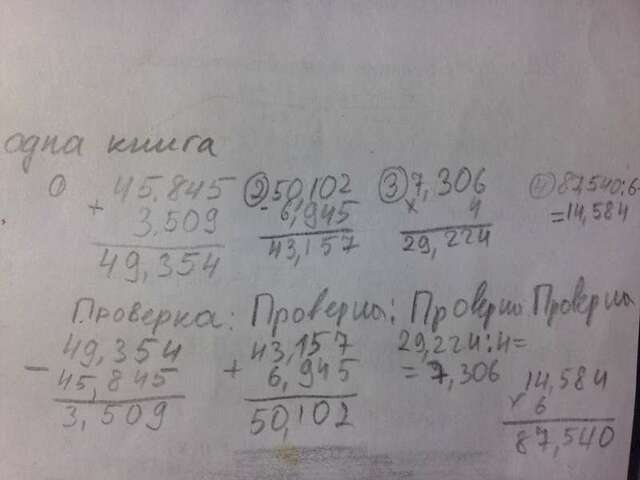 одна книга
① 45.845
+ 3,509
49,354
② 50,102
- 6,945
43,157
③ 7,306
× 4
29,224
④ 87,540:6
=14,584
Проверка:
49,354
- 45,845
3,509
Проверка:
43,157
+ 6,945
50,102
Проверка
29,224:4=
= 7,306
Проверка
14,584
× 6
87,540